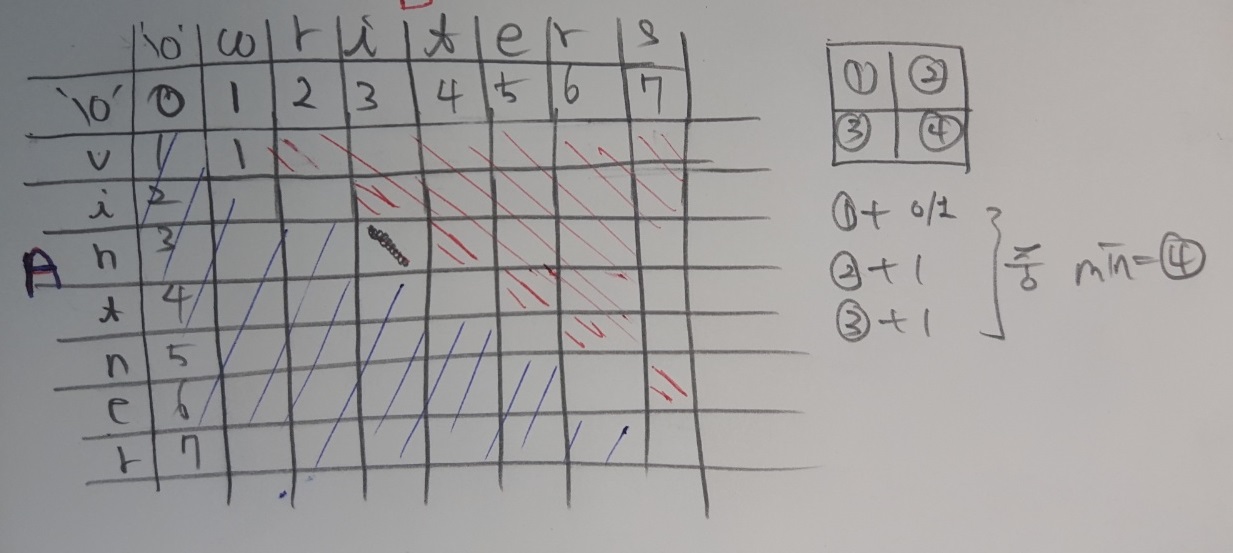 '\0' w r i t e r s
'\0' 0 1 2 3 4 5 6 7
v 1 1
i 2
n 3
A
t 4
n 5
e 6
r 7
① ②
③ ④
①+ 0/1
②+1
③+1
중 min=④